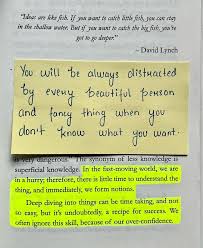 "Ideas are like fish. If you want to catch little fish, you can stay
in the shallow water. But if you want to catch the big fish, you've
got to go deeper."
– David Lynch
You will be always distracted
by every beautiful person
and fancy thing when you
don't know what you want.
is very dangerous." The synonym of less knowledge is
superficial knowledge. In the fast-moving world, we are
in a hurry; therefore, there is little time to understand the
thing, and immediately, we form notions.
Deep diving into things can be time taking, and not
so easy, but it's undoubtedly, a recipe for success. We
often ignore this skill, because of our over-confidence.